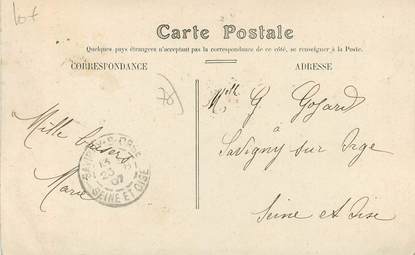 Carte Postale
Quelques pays étrangers n'acceptant pas la correspondance de ce côté, se renseigner à la Poste.
CORRESPONDANCE
ADRESSE
Mille baisers
Marie
Mlle G Gojard
à
Savigny sur Orge
Seine et Oise
SAVIGNY-S-ORGE
13
20
07
SEINE ET OISE
78